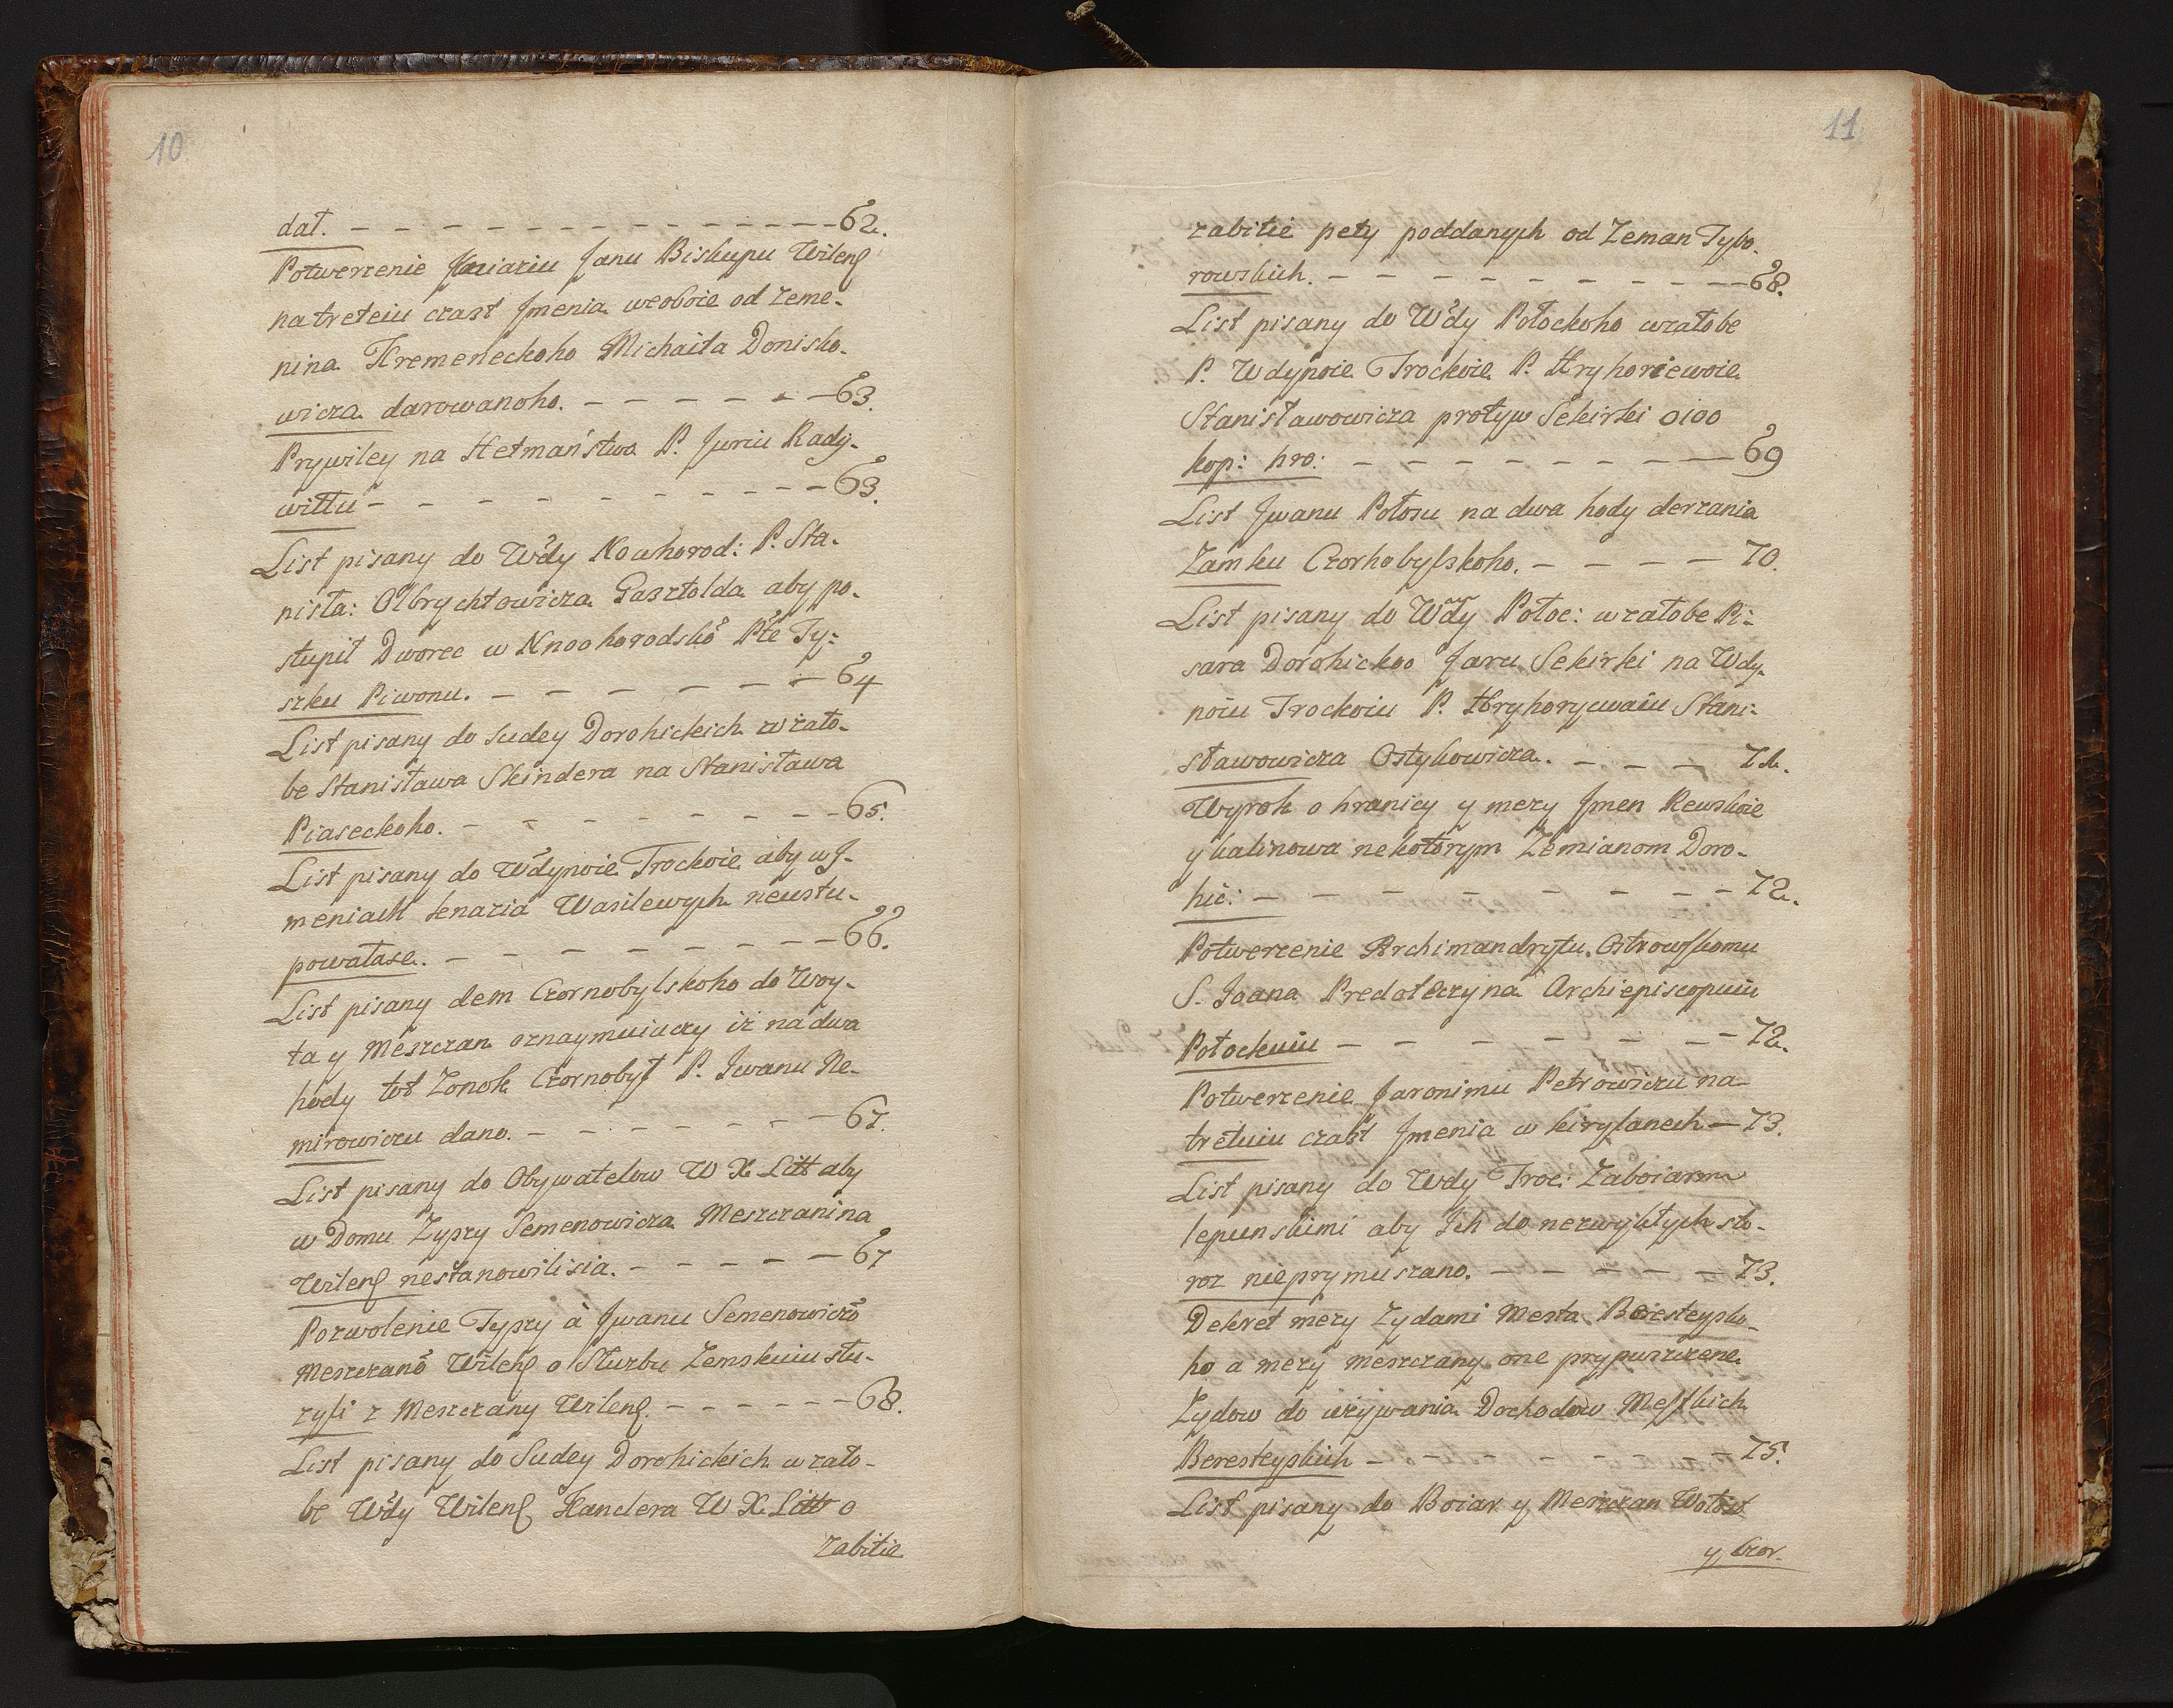 10
dał. - - - - - - - - - - - - - 62.
Potwerzenie Kniaziu Janu Biskupu Wilenſ
na treteiu czast Jmenia weoboie od zeme-
nina Kremeneckoho Michaiła Donisko-
wicza darowanoho. - - - - - - 63.
Prywiley na Hetmaństwo P. Juriu Rady-
wiłłu - - - - - - - - - 63.
List pisany do Wdy Nowhorod: P. Sta-
nisła: Olbrychtowicza Gasztolda aby po-
stupił Dworec w Nnoohorodskō Płe Ty-
szku Piwonu. - - - - - - 64
List pisany do Sudey Dorohickich w zało-
be Stanisława Skindera na Stanisława
Piaseckoho. - - - - - - - - 65.
List pisany do Wdynoie Trockoie aby w J-
meniach kenazia Wasilewych neustu-
powałase. - - - - - - - 66.
List pisany dem Czornobylskoho do Woy-
ta y Meszczan oznaymuiuczy iż na dwa
hody tot Zonok Czornobył P. Jwanu Ne-
mirowiczu dano. - - - - - - 67.
List pisany do Obywatelow W X Litt aby
w Domu Zypry Semenowicza Meszczanina
Wilenſ nestanowilisia. - - - - - 67
Pozwolenie Typry à Jwanu Semenowiczō
Meszczanō Wilenſ o Służbu Zemskuiu słu-
zyli z Meszczany Wilenſ. - - - - - - 68.
List pisany do Sudey Dorohickich w zało-
be Wdy Wilenſ Kanclera W X Litt o
zabitie
11
zabitie pety poddanych od Zeman Tybo-
rowskich. - - - - - - - - 68.
List pisany do Wdy Połockoho wzałobe
P. Wdynoie Trockoie P. Hryhoriewoie
Stanisławowicza protyw Sekirki o 100
kop: hro: - - - - - - - - 69
List Jwanu Połosu na dwa hody derzania
Zamku Czorhobylskoho. - - - - 70.
List pisany do Wdy Połoc: w załobe Pi-
sara Dorohickoo Jaru Sekirki na Wdy-
noiu Trockoiu P. Hryhorywaiu Stani-
sławowicza Ostykowicza. - - - 71.
Wyrok o hranicy y mezy Jmen Rewskoie
y kalinowa nekotorym Zemianom Doro-
hic: - - - - - - - - 72.
Potwerzenie Archimandrytu. Ostrowſkomu
S. Joana Predoteczyna Archiepiscopuiu
Połockuiu - - - - - - - 72.
Potwerzenie Jaronimu Petrowiczu na
tretuiu czast Jmenia w kirylanech - 73.
List pisany do Wdy Troc: Zaboiarm
lepunskimi aby Jch do nezwykłych sto-
roz nieprymuszano. - - - - - 73.
Dekret mezy Zydami Mesta Beresteysko-
ho a mezy meszczany one prypuszczene
Zydow do używania Dochodow Meſſkich
Beresteyskich - - - - - - - - 75.
List pisany do Boiar y Meszczan Wołost
y Czor.